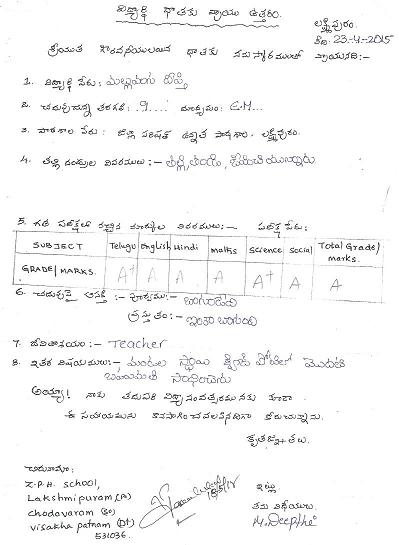 విద్యార్థి దాతకు వ్రాయు ఉత్తరం.
లక్ష్మీపురం.
తేది: 23-4-2015
శ్రీయుత గౌరవనీయులయిన దాతకు నమస్కారములతో వ్రాయునది:-
1. విద్యార్థి పేరు: మల్లువలస దీప్తి
2. చదువుచున్న తరగతి: 9.... మాధ్యమం: E.M...
3. పాఠశాల పేరు: జిల్లా పరిషత్ ఉన్నత పాఠశాల. లక్ష్మీపురం.
4. తల్లి తండ్రుల వివరములు:- తల్లి, తండ్రి, జీవించియున్నారు
5. గత పరీక్షలో వచ్చిన మార్కుల వివరములు:- పరీక్ష పేరు:
SUBJECT Telugu English Hindi maths science social Total Grade/marks.
GRADE/MARKS. A+ A A A A+ A A
6. చదువుపై ఆసక్తి :- పూర్వము:- బాగుండేది
ప్రస్తుతం:- ఇంకా బాగుంది
7. జీవితాశయం:- Teacher
8. ఇతర విషయములు:- మండల స్థాయి క్విజ్ పోటీలో మొదటి
బహుమతి సాధించెను
అయ్యా! నాకు తదుపరి విద్యా సంవత్సరమునకు కూడా
ఈ సహాయమును కొనసాగించవలసినదిగా కోరుచున్నాను.
కృతజ్ఞతలు.
చిరునామా:
Z.P.H. school,
Lakshmipuram(P)
chodavaram (Po)
visakha patnam (Dt)
531036.
ఇట్లు
తమ విధేయులు
M. Deepthi